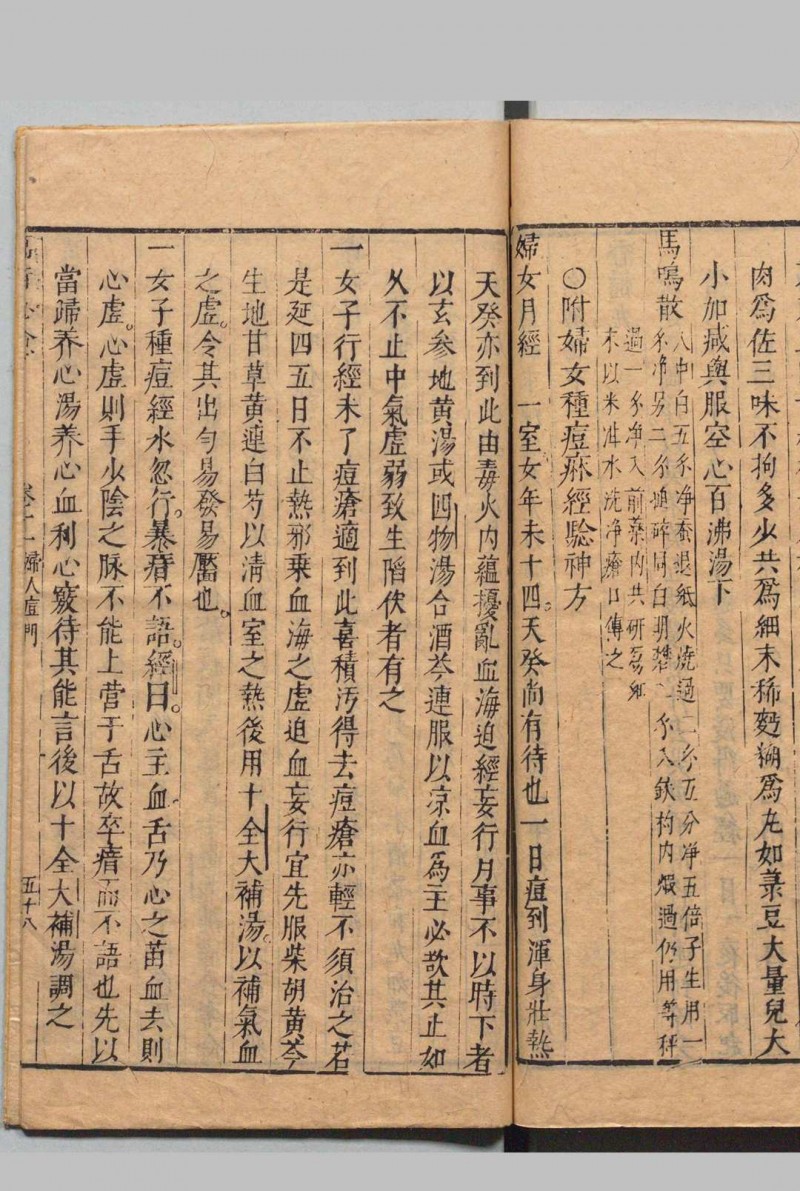 肉爲佐三味不拘多少共爲細末稀麪糊爲丸如菉豆大量兒大
小加減與服空心百沸湯下
馬鳴散 八中白五分净蚕退紙火燒過二分五分净五倍子生用一
分净另二分鎚碎同白明礬二分入鉄杓内煆過仍用等秤
過一分净入前藥内共研爲細
末以米泔水洗净瘡口傅之
〇附婦女種痘痳經驗神方
婦女月經 一室女年未十四天癸尚有待也一日痘到渾身壯熱
天癸亦到此由毒火内蘊擾亂血海迫經妄行月事不以時下者
以玄參地黄湯或四物湯合酒芩連服以凉血爲主必欲其止如
久不止中氣虛弱致生陷伏者有之
一女子行經未了痘瘡適到此喜積汚得去痘瘡亦輕不須治之若
是延四五日不止熱邪乘血海之虛迫血妄行宜先服柴胡黄芩
生地甘草黄連白芍以清血室之熱後用十全大補湯以補氣血
之虛令其出勻易發易靨也
一女子種痘經水忽行暴瘖不語經曰心主血舌乃心之苗血去則
心虛心虛則手少陰之脉不能上营于舌故卒瘖而不語也先以
當歸养心湯养心血利心竅待其能言後以十全大補湯調之
卷之一婦人痘門 五十八